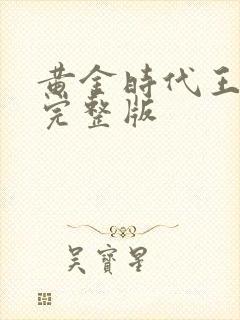 黄金時代王
完整版
吴寶星